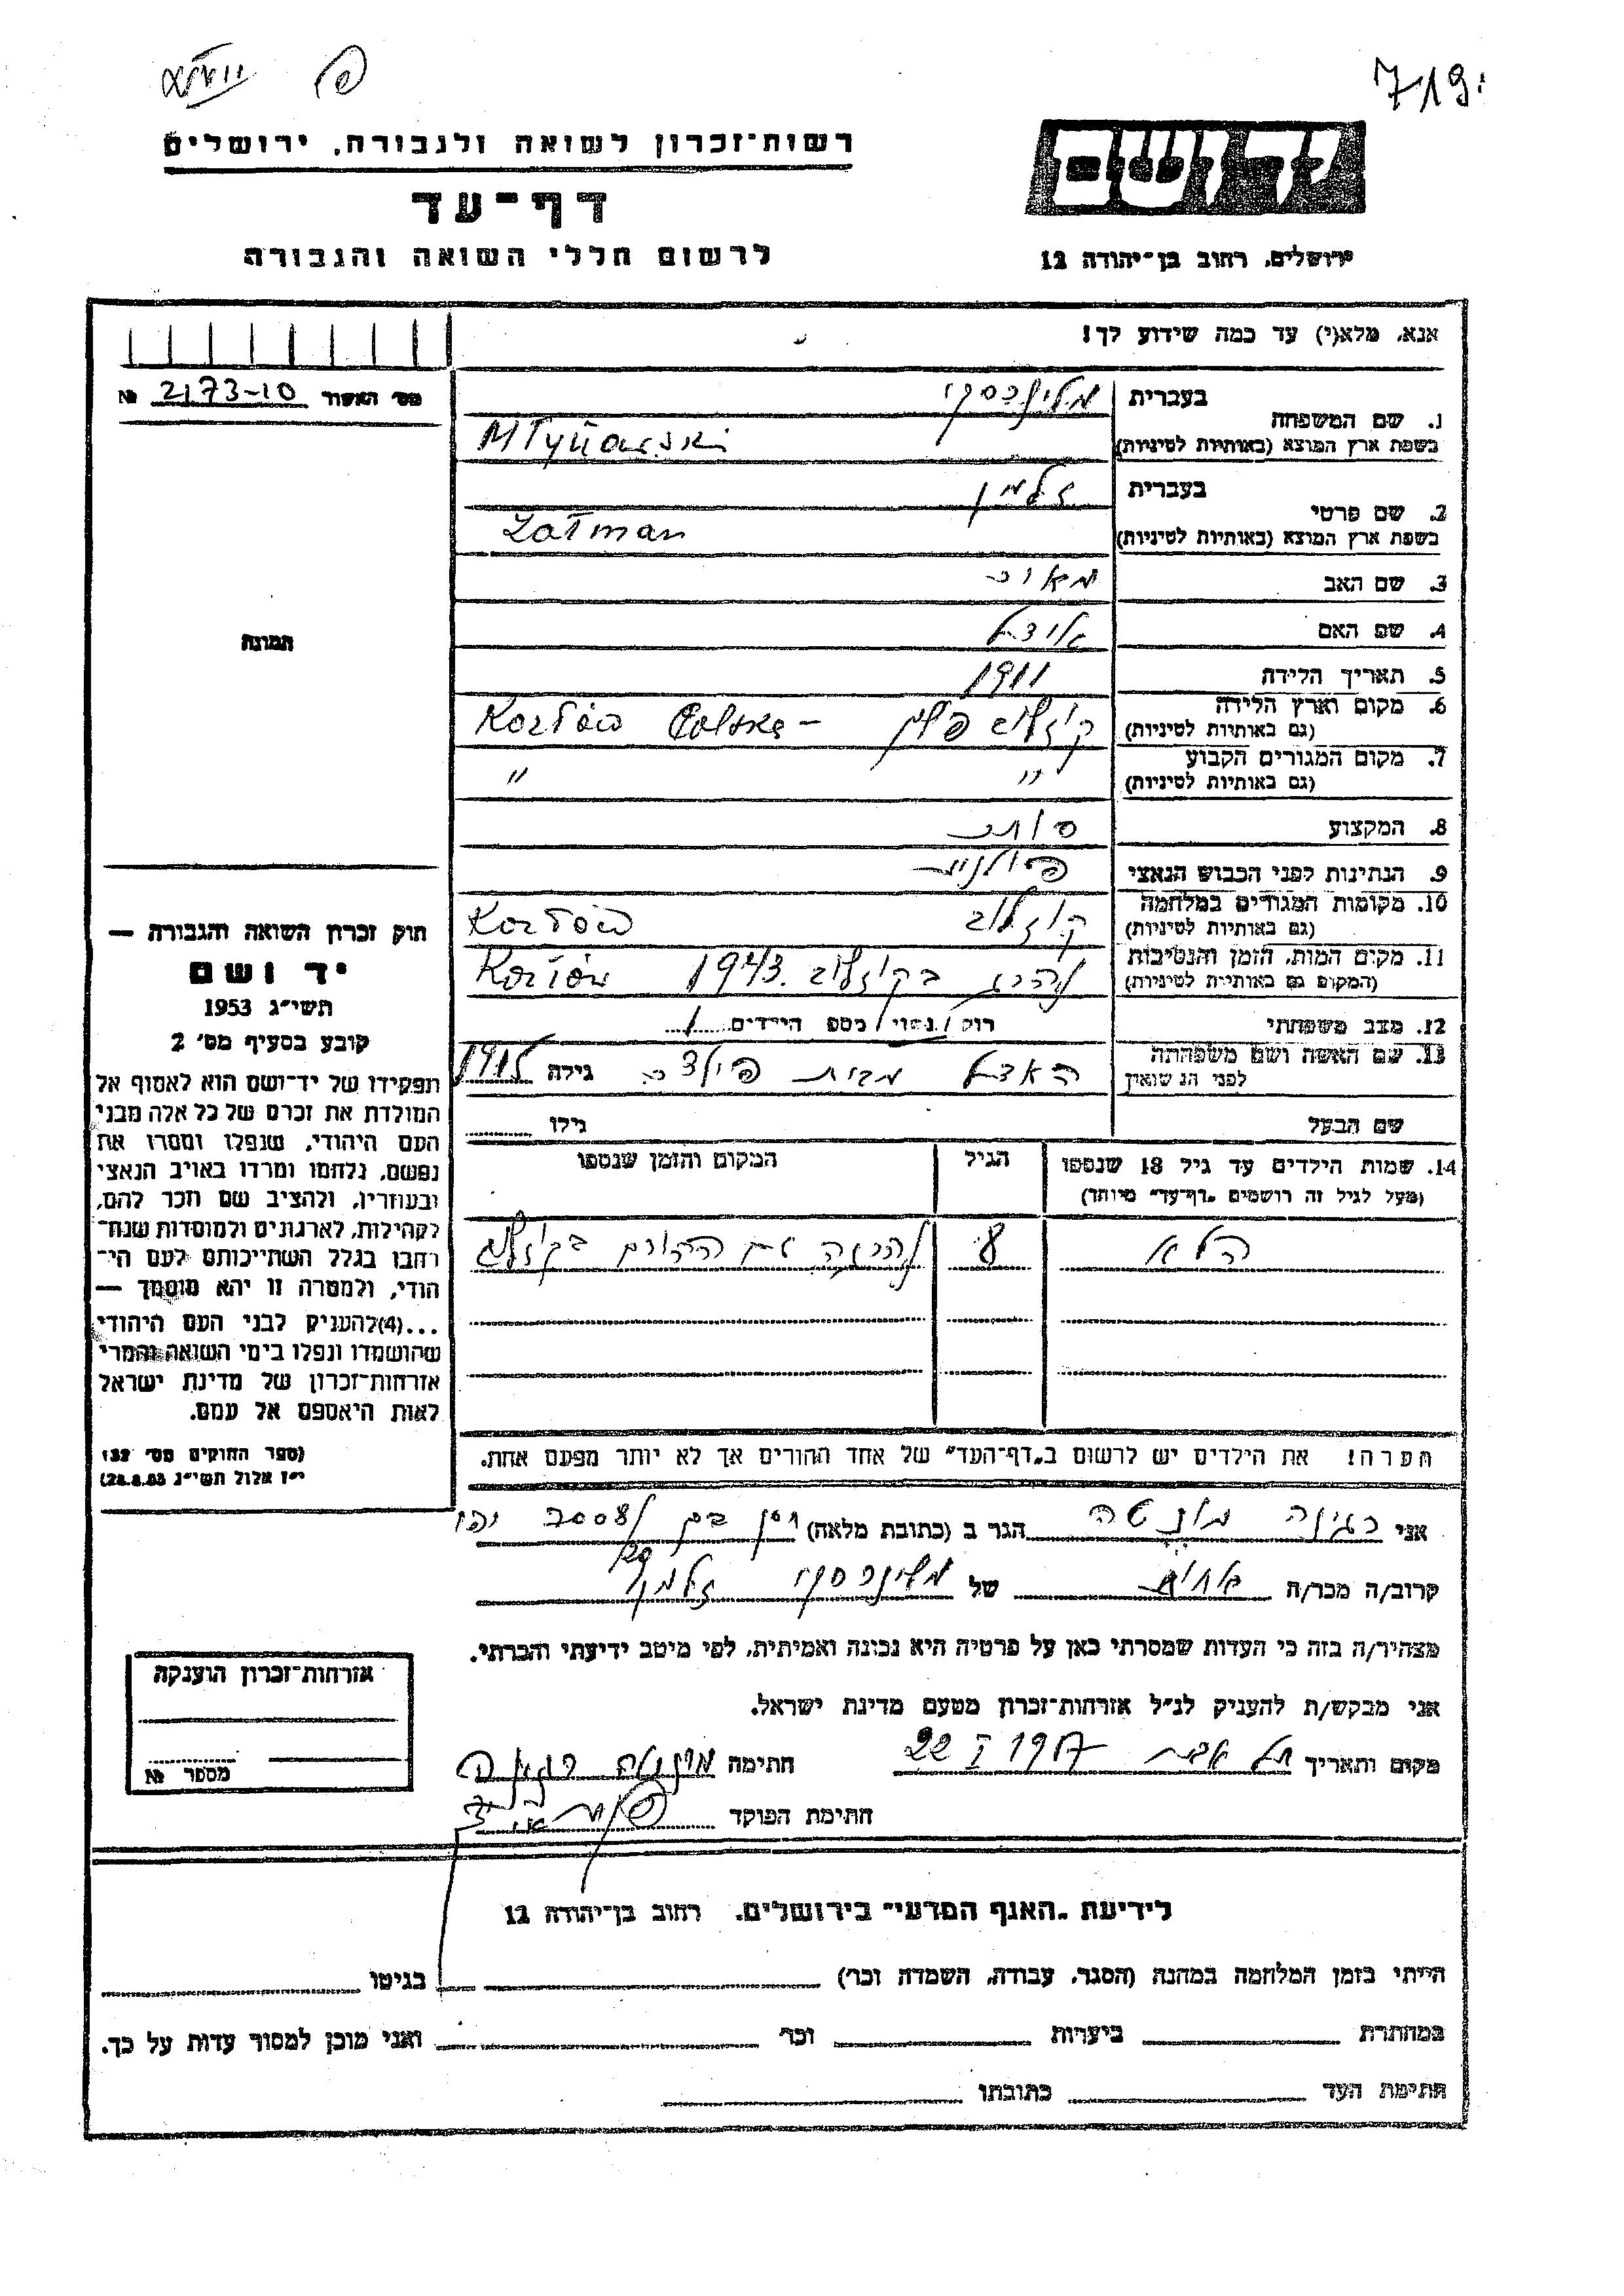 719
רשות־זכרון לשואה ולגבורה, ירושלים
דף־עד
לרשום חללי השואה והגבורה
יד ושם
ירושלים, רחוב בן־יהודה 12
אנא, מלא(י) עד כמה שידוע לך!
מס׳ האשור № 2173-10
תמונה
1. שם המשפחה
בעברית מלינרסקי
בשפת ארץ המוצא (באותיות לטיניות) Młynarski
2. שם פרטי
בעברית זלמן
בשפת ארץ המוצא (באותיות לטיניות) Załman
3. שם האב מאיר
4. שם האם
5. תאריך הלידה 1911
6. מקום וארץ הלידה קוזלוב פולין – Kozłów Polska
(גם באותיות לטיניות)
7. מקום המגורים הקבוע " "
(גם באותיות לטיניות)
8. המקצוע סוחר
9. הנתינות לפני הכבוש הנאצי פולנית
10. מקומות המגורים במלחמה קוזלוב Kozłów
(גם באותיות לטיניות)
11. מקום המות, הזמן והנסיבות נהרג בקוזלוב 1943. Kozłów
(המקום גם באותיות לטיניות)
12. מצב משפחתי רווק / נשוי / מספר הילדים 1
13. שם האשה ושם משפחתה
לפני הנשואין מבית גילה 1915
שם הבעל גילו
14. שמות הילדים עד גיל 18 שנספו הגיל המקום והזמן שנספו
(מעל לגיל זה רושמים „דף־עד״ מיוחד)
נהרגה עם ההורים בקוזלוב
חוק זכרון השואה והגבורה —
יד ושם
תשי״ג 1953
קובע בסעיף מס׳ 2
תפקידו של יד־ושם הוא לאסוף אל
המולדת את זכרם של כל אלה מבני
העם היהודי, שנפלו ומסרו את
נפשם, נלחמו ומרדו באויב הנאצי
ובעוזריו, ולהציב שם וזכר להם,
לקהילות, לארגונים ולמוסדות שנח־
רבו בגלל השתייכותם לעם הי־
הודי, ולמטרה זו יהא מוסמך —
...(4) להעניק לבני העם היהודי
שהושמדו ונפלו בימי השואה והמרי
אזרחות־זכרון של מדינת ישראל
לאות היאספם אל עמם.
(ספר החוקים מס׳ 132
י״ז אלול תשי״ג 28.8.53)
הערה! את הילדים יש לרשום ב„דף־העד״ של אחד ההורים אך לא יותר מפעם אחת.
אני רגינה הגר ב (כתובת מלאה)
קרוב/ה מכר/ה אחות של מלינרסקי זלמן
מצהיר/ה בזה כי העדות שמסרתי כאן על פרטיה היא נכונה ואמיתית, לפי מיטב ידיעתי והכרתי.
אני מבקש/ת להעניק לנ״ל אזרחות־זכרון מטעם מדינת ישראל.
מקום ותאריך תל אביב חתימה רגינה
חתימת הפוקד
אזרחות־זכרון הוענקה
מספר №
לידיעת „האגף המדעי״ בירושלים, רחוב בן־יהודה 12
הייתי בזמן המלחמה במחנה (הסגר, עבודה, השמדה וכו׳) בגיטו
במחתרת ביערות וכו׳ ואני מוכן למסור עדות על כך.
חתימת העד כתובתו